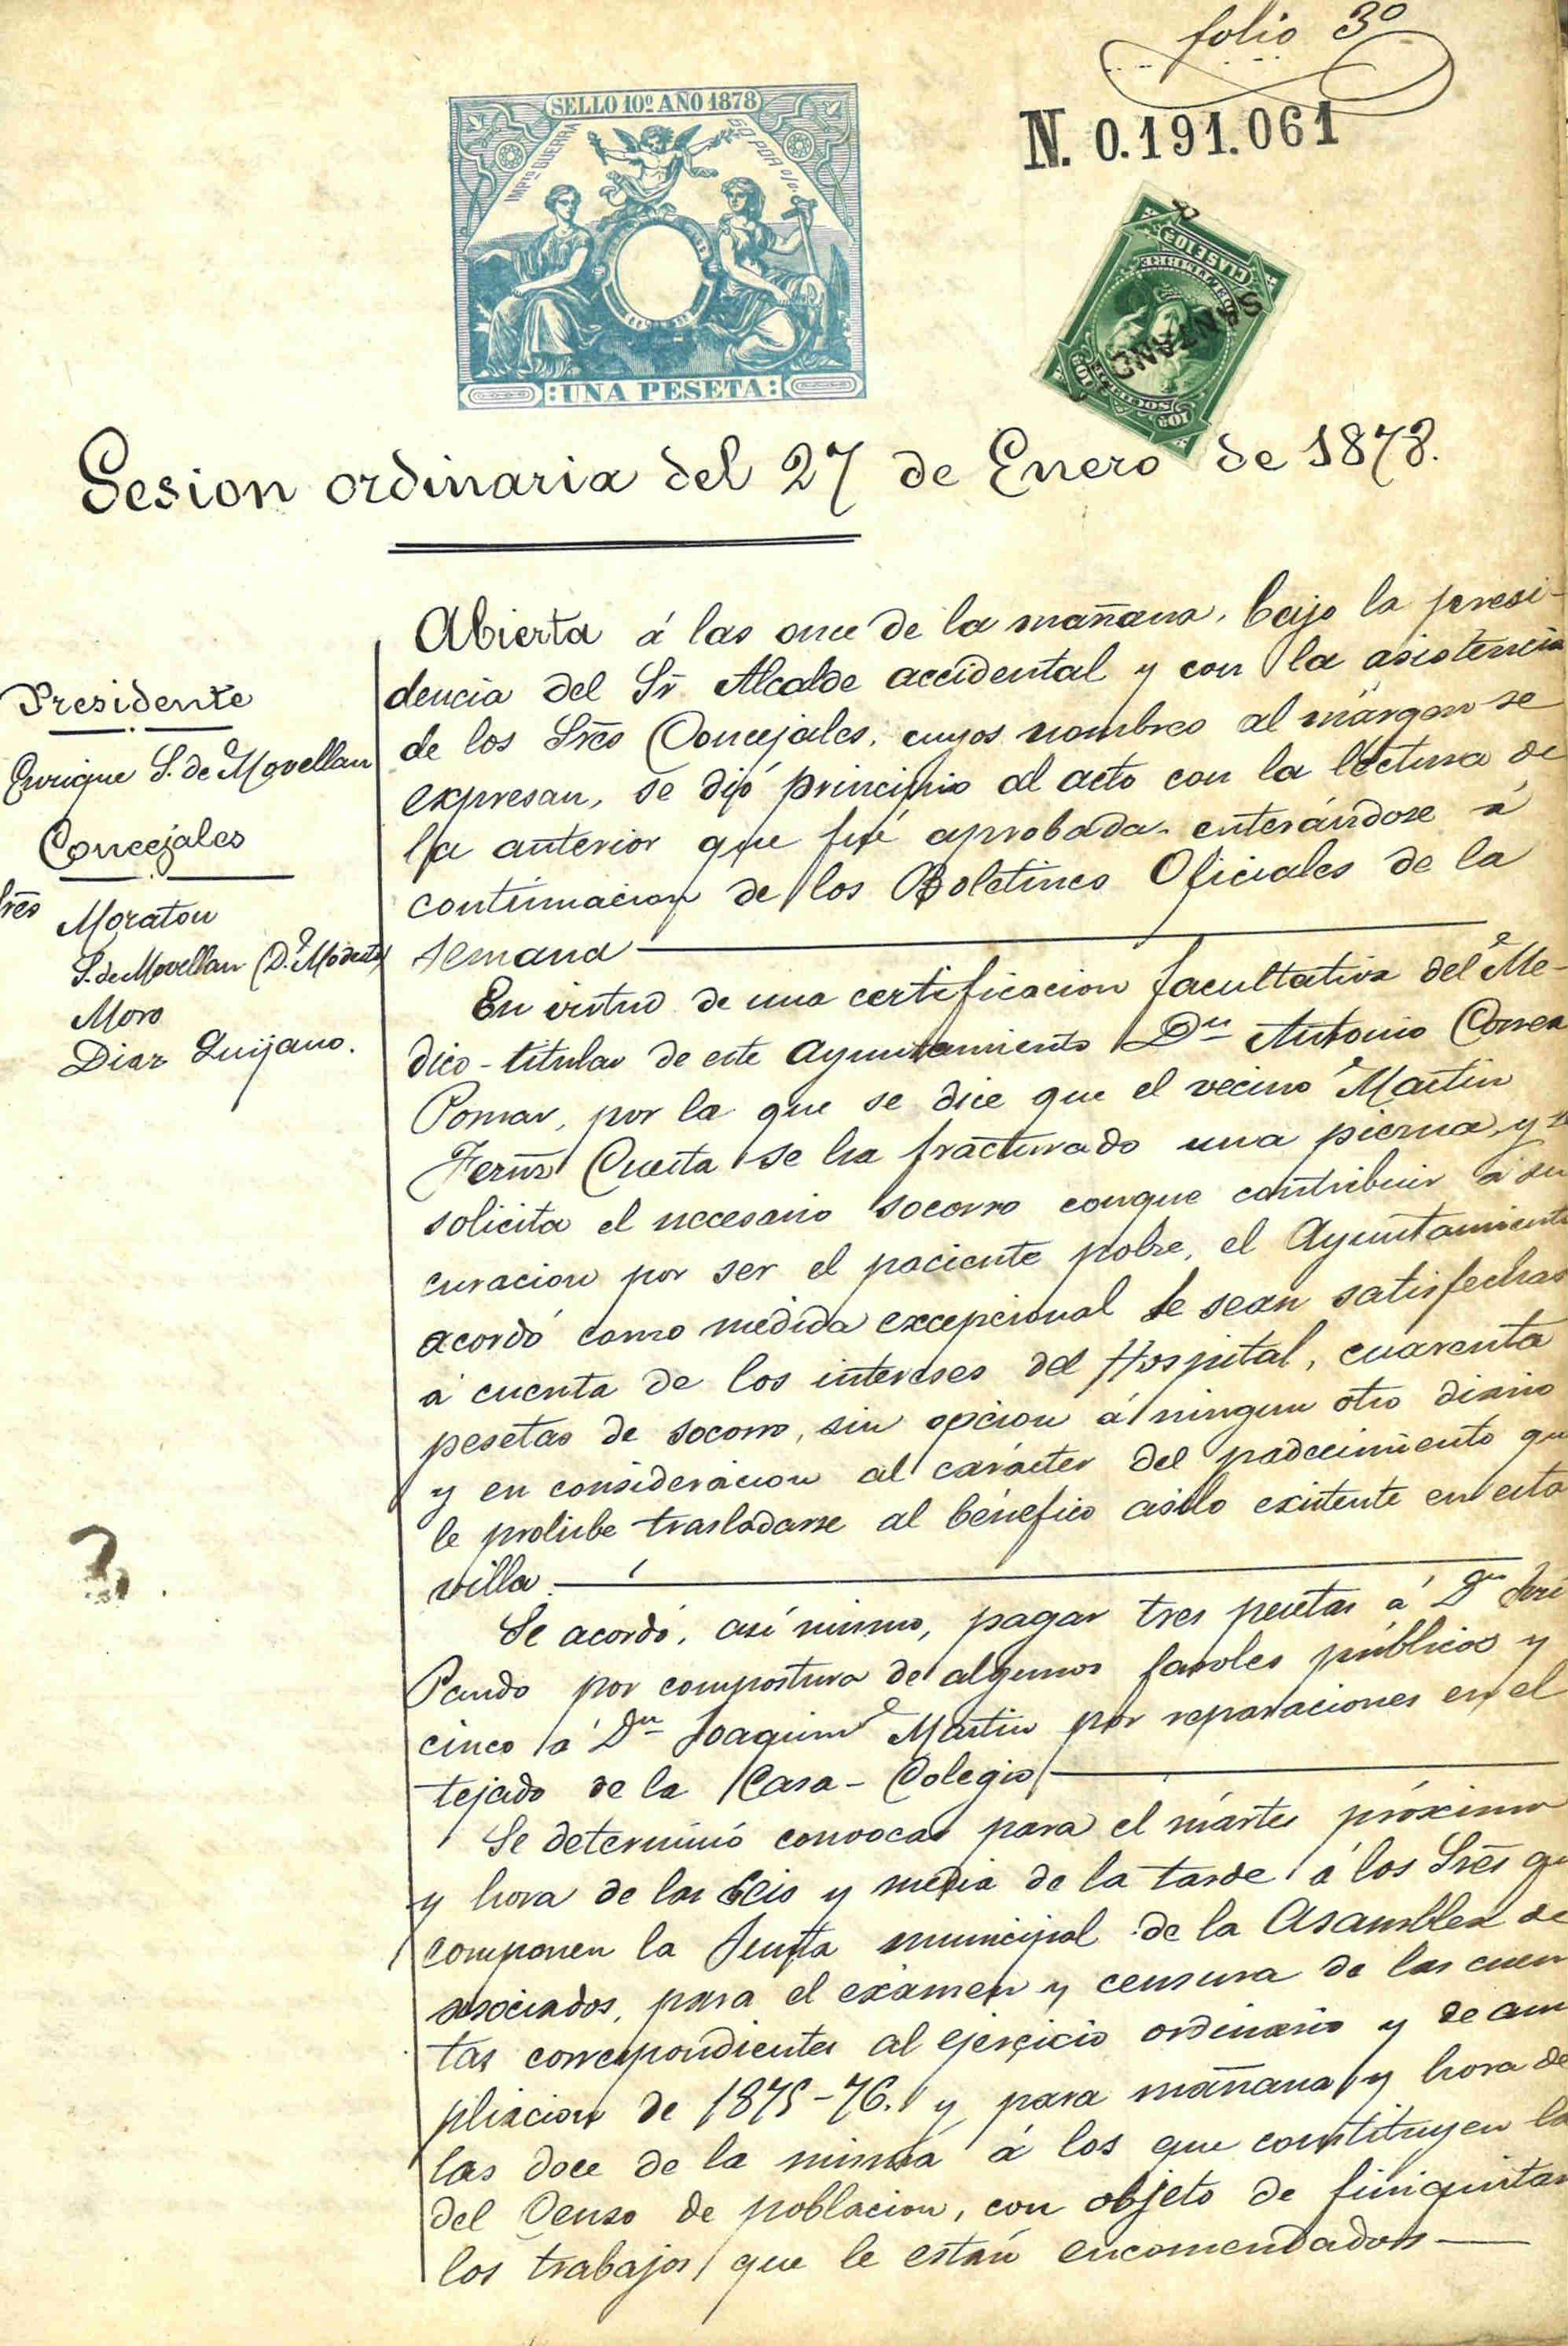 folio 3º
SELLO 10º AÑO 1878
IMPTO GUERRA
50 POR 0/0.
UNA PESETA
N. 0.191.061
CLASE 10ª
Sesion ordinaria del 27 de Enero de 1878.
Presidente
Enrique S. de Movellan
Concejales
Sres
Moraton
S. de Movellan (D. Modesto)
Moro
Diaz Quijano.
Abierta á las once de la mañana, bajo la presi-
dencia del Sr Alcalde accidental y con la asistencia
de los Sres Concejales, cuyos nombres al márgen se
expresan, se dió principio al acto con la lectura de
la anterior que fué aprobada, enterándose á
continuacion de los Boletines Oficiales de la
semana
En virtud de una certificacion facultativa del Mé-
dico-titular de este Ayuntamiento Dn Antonio Correa
Pomar, por la que se dice que el vecino Martin
Fernz Cuesta se ha fracturado una pierna, y se
solicita el necesario socorro conque contribuir á su
curacion por ser el paciente pobre, el Ayuntamiento
acordó como medida excepcional le sean satisfechas
á cuenta de los intereses del Hospital, cuarenta
pesetas de socorro, sin opcion á ningun otro diario
y en consideracion al carácter del padecimiento que
le prohibe trasladarse al benéfico asilo existente en esta
villa.
Se acordó, así mismo, pagar tres pesetas á Dn José
Pando por compostura de algunos faroles públicos y
cinco á Dn Joaquin Martin por reparaciones en el
tejado de la Casa-Colegio
Se determinó convocar para el mártes próximo
y hora de las seis y media de la tarde á los Sres que
componen la Junta municipal de la Asamblea de
asociados, para el exámen y censura de las cuen
tas correspondientes al ejercicio ordinario y de am
pliacion de 1875-76. y para mañana y hora de
las doce de la misma á los que constituyen la
del Censo de poblacion, con objeto de finiquitar
los trabajos que le están encomendados